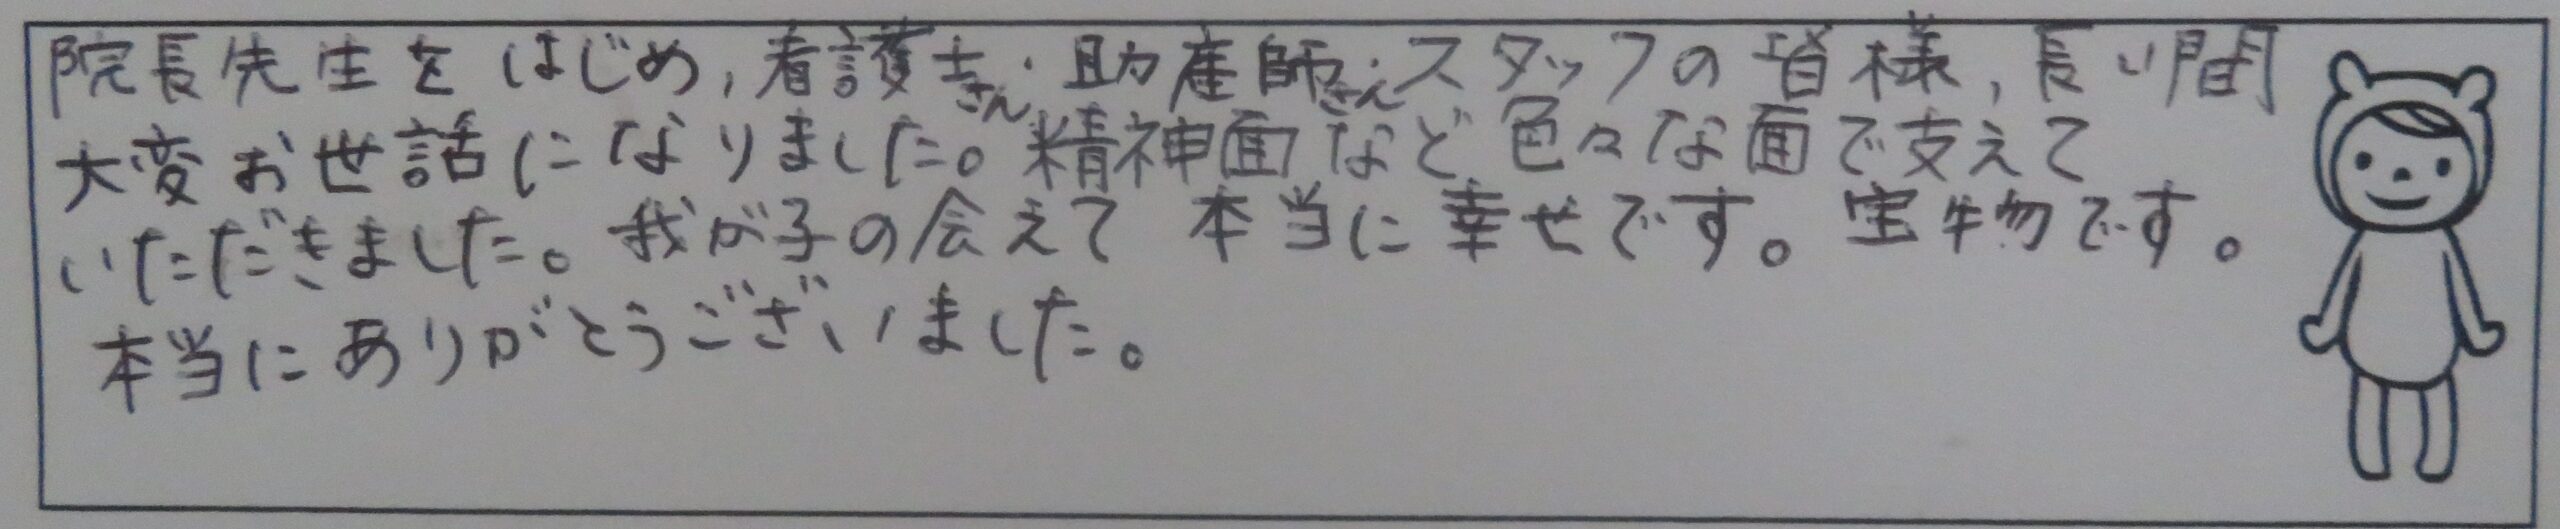 院長先生をはじめ,看護士さん・助産師さん・スタッフの皆様,長い間
大変お世話になりました。精神面など色々な面で支えて
いただきました。我が子の会えて 本当に幸せです。宝物です。
本当にありがとうございました。